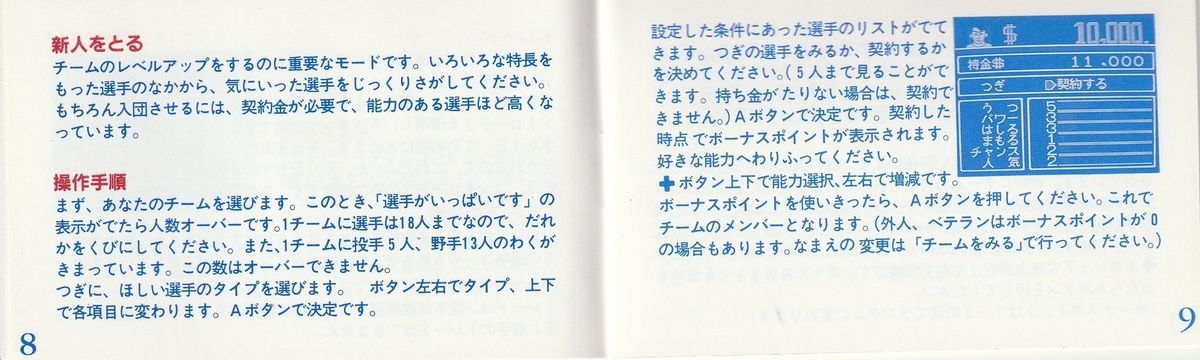 新人をとる
チームのレベルアップをするのに重要なモードです。いろいろな特長を
もった選手のなかから、気にいった選手をじっくりさがしてください。
もちろん入団させるには、契約金が必要で、能力のある選手ほど高くな
っています。
操作手順
まず、あなたのチームを選びます。このとき、「選手がいっぱいです」の
表示がでたら人数オーバーです。1チームに選手は18人までなので、だれ
かをくびにしてください。また、1チームに投手5人、野手13人のわくが
きまっています。この数はオーバーできません。
つぎに、ほしい選手のタイプを選びます。 ボタン左右でタイプ、上下
で各項目に変わります。Aボタンで決定です。
8
設定した条件にあった選手のリストがでて
きます。つぎの選手をみるか、契約するか
を決めてください。(5人まで見ることがで
きます。持ち金がたりない場合は、契約で
きません。)Aボタンで決定です。契約した
時点でボーナスポイントが表示されます。
好きな能力へわりふってください。
✚ボタン上下で能力選択、左右で増減です。
ボーナスポイントを使いきったら、Aボタンを押してください。これで
チームのメンバーとなります。(外人、ベテランはボーナスポイントが0
の場合もあります。なまえの変更は「チームをみる」で行ってください。)
$ 10,000.
持金$ 11,000
つぎ 契約する
うつ 5
パワー 3
はしる 3
まもる 1
チャンス 2
人気 2
9